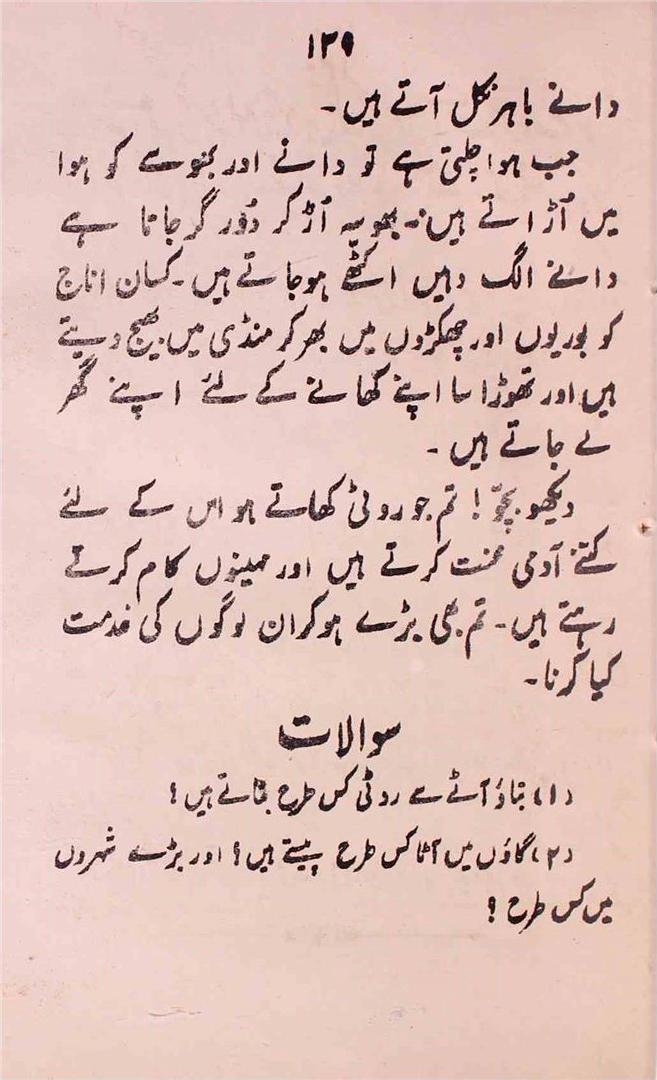 ۱۳۹
دانے باہر نکل آتے ہیں۔
جب ہوا چلتی ہے تو دانے اور بھوسے کو ہوا
میں اُڑاتے ہیں۔ بھوسہ اُڑ کر دُور گر جاتا ہے
دانے الگ وہیں اکٹھے ہوجاتے ہیں۔ کسان اناج
کو بوریوں اور چھکڑوں میں بھر کر منڈی میں بھیج دیتے
ہیں اور تھوڑا سا اپنے کھانے کے لئے اپنے گھر
لے جاتے ہیں۔
دیکھو بچّو! تم جو روٹی کھاتے ہو اس کے لئے
کتنے آدمی محنت کرتے ہیں اور مہینوں کام کرتے
رہتے ہیں۔ تم بھی بڑے ہو کر ان لوگوں کی خدمت
کیا کرنا۔
سوالات
(۱) بتاؤ آٹے سے روٹی کس طرح بناتے ہیں؟
(۲) گاؤں میں آٹا کس طرح پیستے ہیں؟ اور بڑے شہروں
میں کس طرح؟